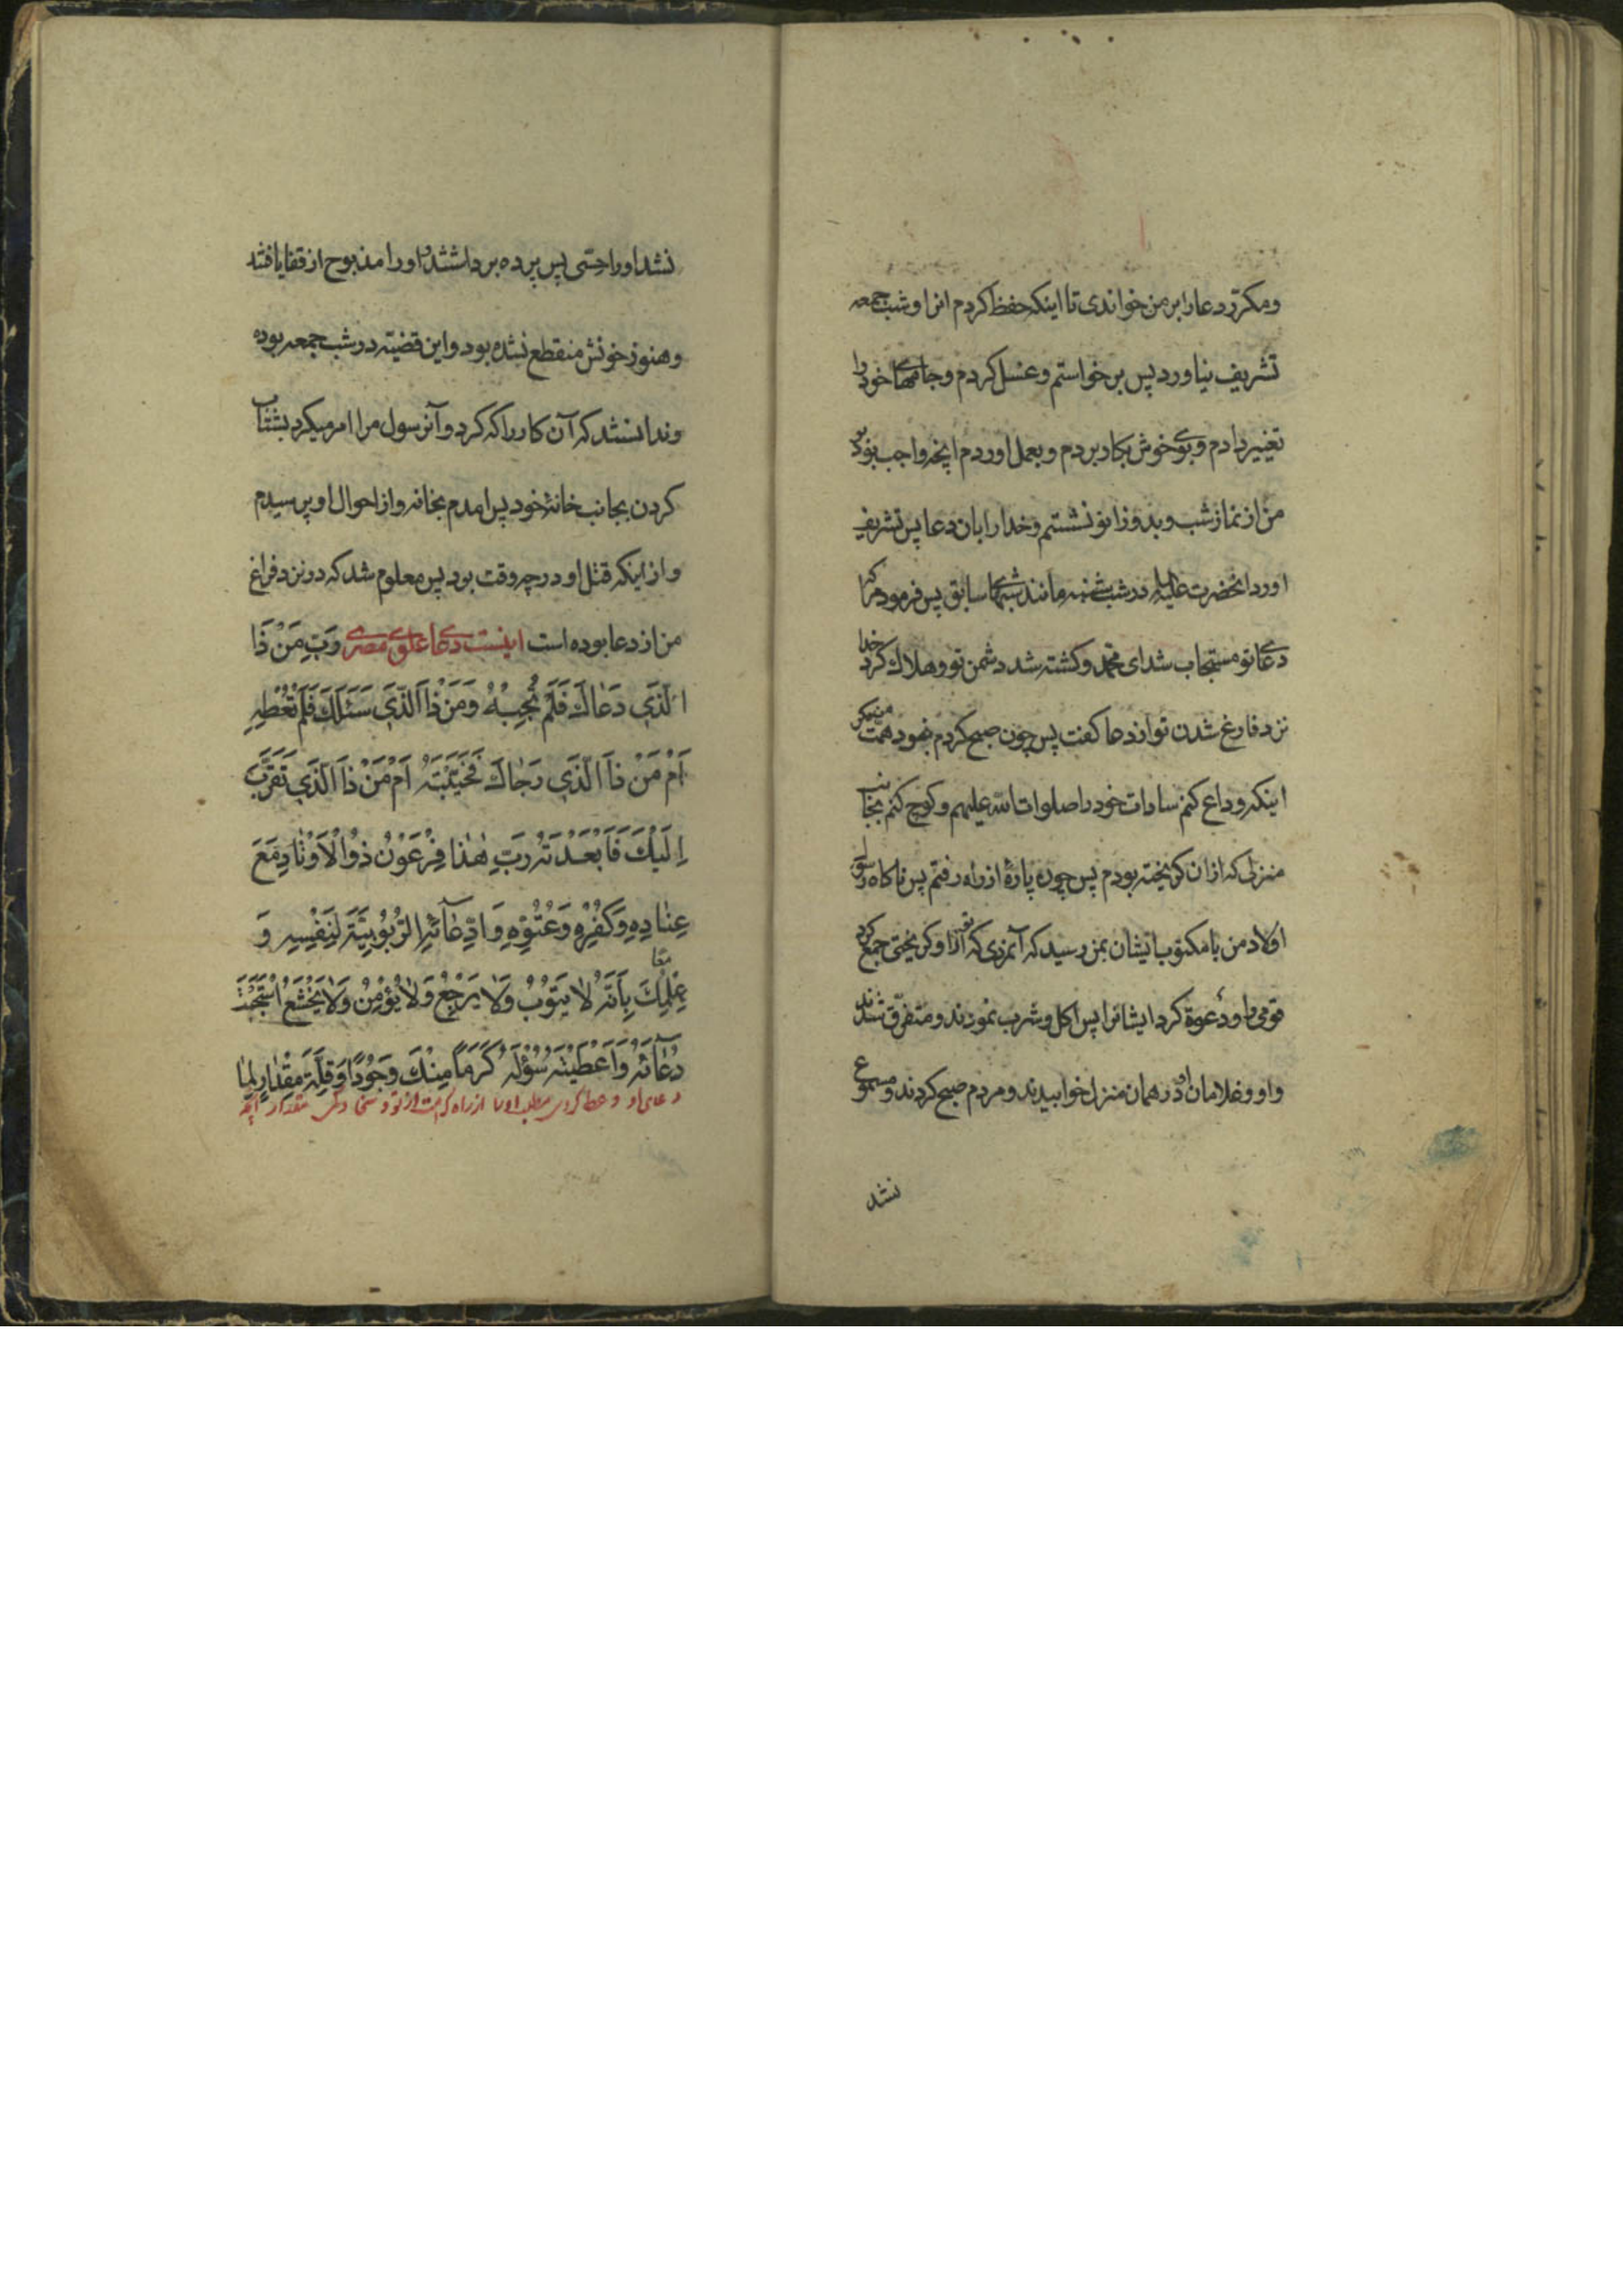 ومکرّر دعا را بر من خواندی تا اینکه حفظ کردم انرا و شب جمعه
تشریف نیاورد پس برخواستم و غسل کردم و جامهای خود را
تغییر دادم و بوی خوش بکار بردم و بعمل اوردم انچه واجب بود بر
من از نماز شب و بدو زانو نشستم و خدا را بان دعا پس تشریف
اورد انحضرت علیه در شب شنبه مانند شبهای سابق پس فرمود مرا که
دعای تو مستجاب شد ای محمّد و کشته شد دشمن تو و هلاك کرد خدا
نزد فارغ شدن تو از دعا کفت پس چون صبح کردم نبود همّت من مکر
اینکه وداع کنم سادات خود را صلوات الله علیهم و کوچ کنم بجانب
منزلی که ازان کریخته بودم پس چون پارهٔ از راه رفتم پس ناکاه رسول
اولاد من با مکتوب ایشان بمن رسید که آنمردی که تو از او کریختی جمع کرد
قومی را و دعوة کرد ایشانرا پس اکل و شرب نمودند و متفرّق شدند
و او و غلامان او در همان منزل خوابیدند و مردم صبح کردند و مسموع
نشد
نشد اورا حسّی پس پرده برداشتند و اورا مذبوح از قفا یافتند
و هنوز خونش منقطع نشده بود و این قضیّه در شب جمعه بوده
و ندانستند که آن کار را که کرد و آنرسول مرا امر میکرد بشتاب
کردن بجانب خانهٔ خود پس امدم بخانه و از احوال او پرسیدم
و از اینکه قتل او در چه وقت بود پس معلوم شد که در نزد فراغ
من از دعا بوده است اینست دعای علوی مصری رَبِّ مَنْ ذَا
الَّذي دَعٰاكَ فَلَمْ تُجِبْهُ وَمَنْ ذَا الَّذي سَئَلَكَ فَلَمْ تُعْطِهِ
اَمْ مَنْ ذَا الَّذي رَجٰاكَ فَخَيَّبْتَهُ اَمْ مَنْ ذَا الَّذي تَقَرَّبَ
اِلَيْكَ فَاَبْعَدْتَهُ رَبِّ هٰذا فِرْعَوْنُ ذُوالْاَوْتٰادِ مَعَ
عِنٰادِهِ وَكُفْرِهِ وَعُتُوِّهِ وَادِّعٰآئِهِ الرُّبُوبِيَّةَ لِنَفْسِهِ وَ
معًا
عِلْمِكَ بِاَنَّهُ لٰا يَتُوبُ وَلٰا يَرْجِعُ وَلٰا يُؤْمِنُ وَلٰا يَخْشَعُ اسْتَجَبْتَ
دُعٰآئَهُ وَاَعْطَيْتَهُ سُؤْلَهُ كَرَمًا مِنْكَ وَجُودًا وَقِلَّةَ مِقْدٰارٍ لِمٰا
دعای او و عطا کردی مطلب او را از راه کرامت از تو و سخا و مقدار انچه